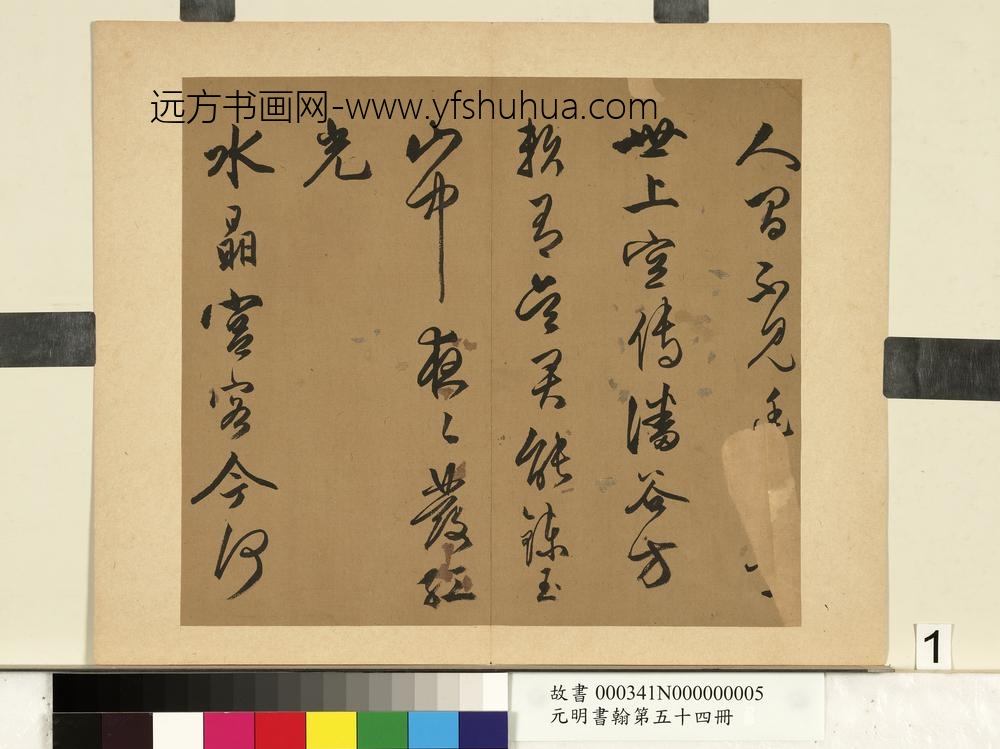 远方书画网-www.yfshuhua.com
人間不見
世上空傳潘谷方
賴有能鍊玉
山中夜々發虹
光
水晶宮客今何
1
故書 000341N000000005
元明書翰第五十四冊